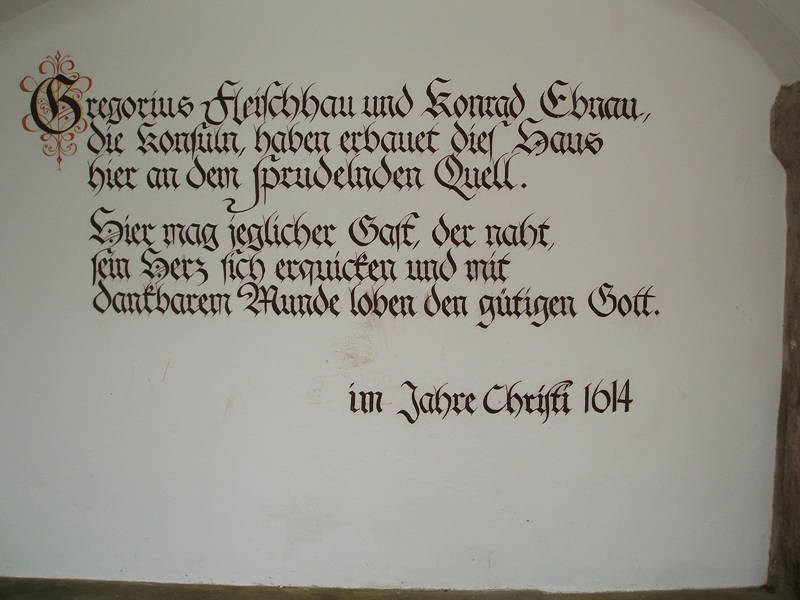 Gregorius Fleischhau und Konrad Ebnau,
die Konsuln, haben erbauet dies Haus
hier an dem sprudelnden Quell.
Hier mag jeglicher Gast, der naht,
sein Herz sich erquicken und mit
dankbarem Munde loben den gütigen Gott.
im Jahre Christi 1614